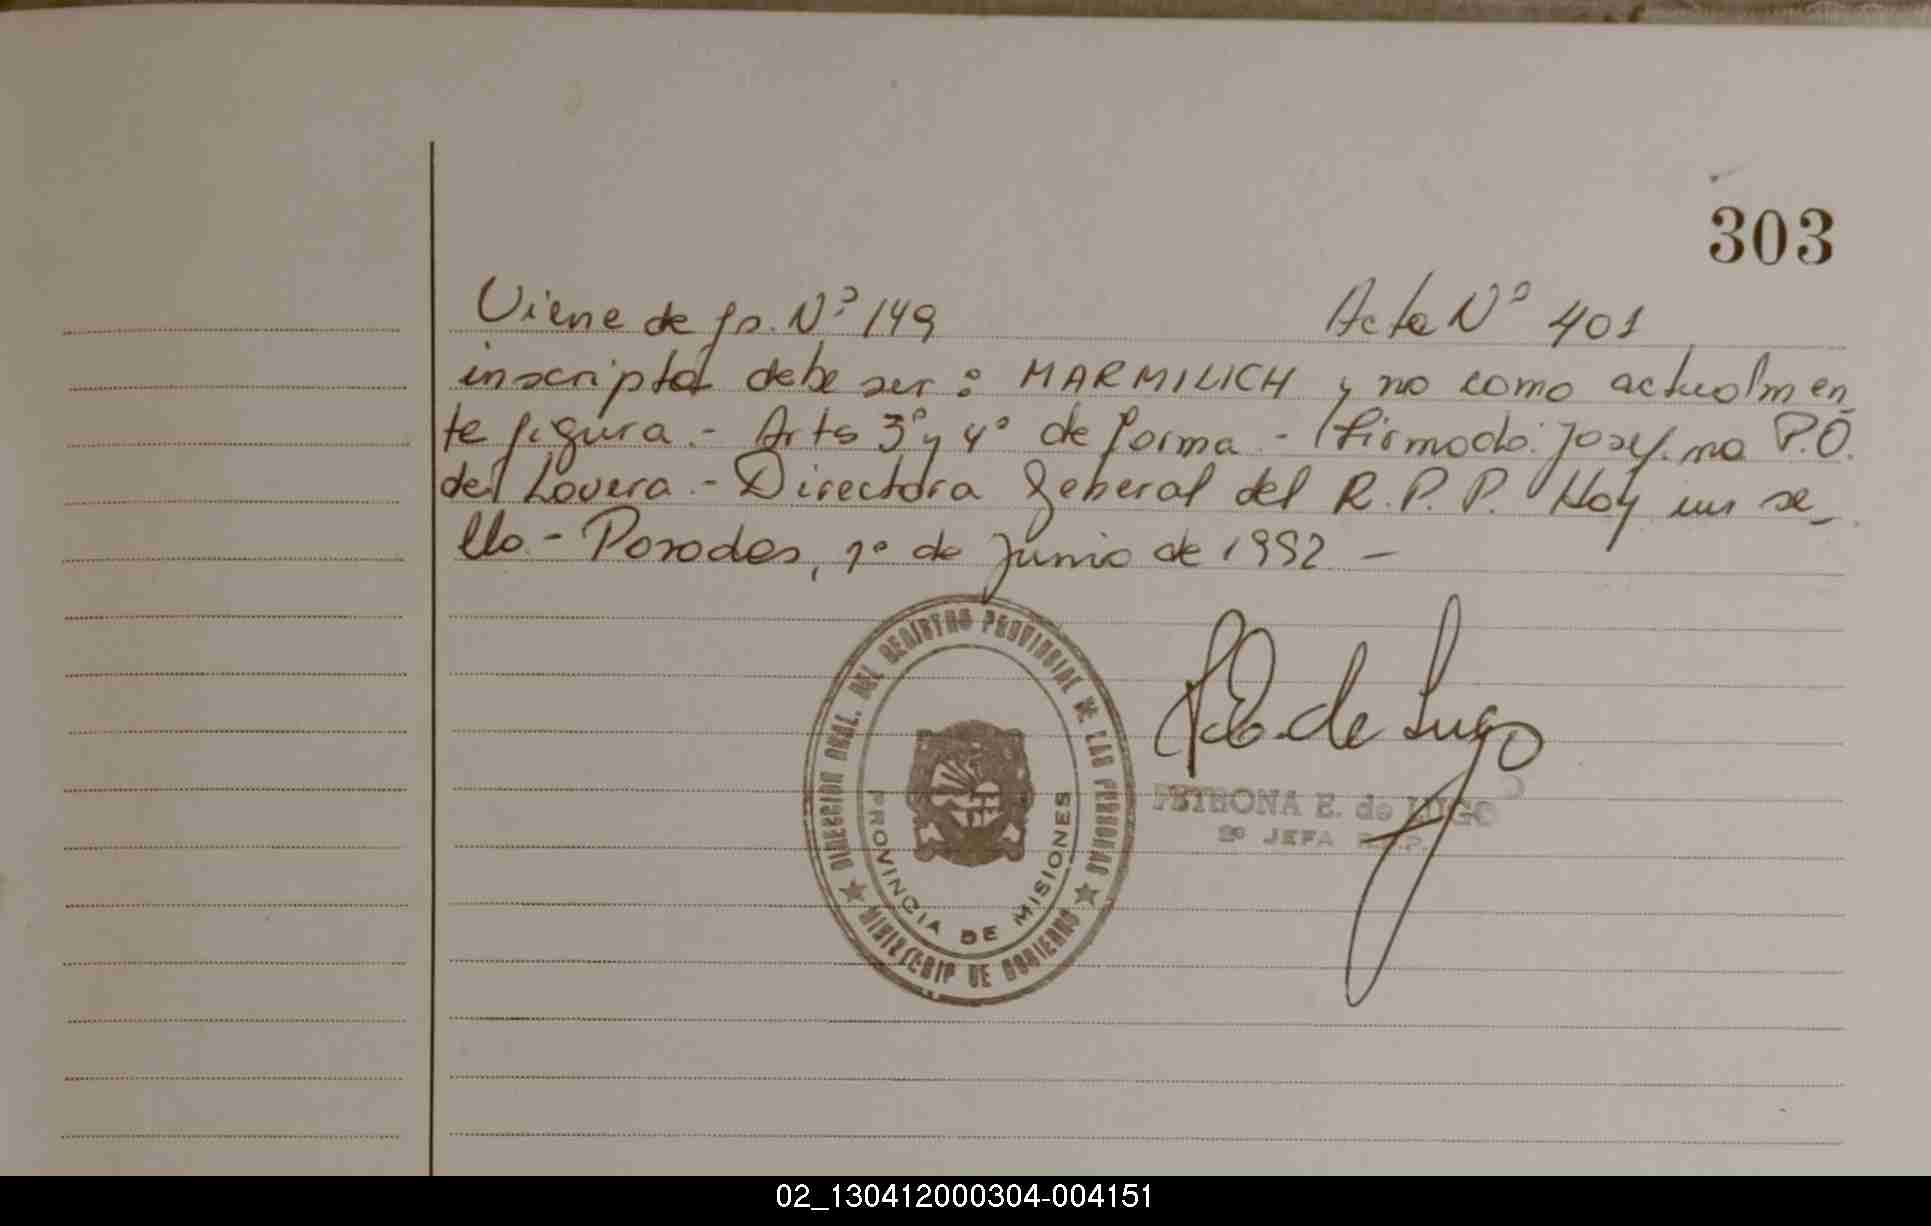 303
Viene de fs. Nº 149 Acta Nº 401
inscripta debe ser: MARMILICH y no como actualmen
te figura.- Arts 3º y 4º de forma.- Firmado: Josef.na P.O.
de Lovera.- Directora General del R.P.P. Hay un se_
llo.- Posadas, 1º de Junio de 1992 -
DIRECCION GRAL. DEL REGISTRO PROVINCIAL DE LAS PERSONAS
PROVINCIA DE MISIONES
MINISTERIO DE GOBIERNO
de Lugo
PETRONA E. de LUGO
2º JEFA R.P.P.
02_130412000304-004151